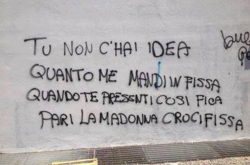 TU NON C'HAI IDEA
QUANTO ME MANDI IN FISSA
QUANDO TE PRESENTI COSÌ FICA
PARI LA MADONNA CROCIFISSA